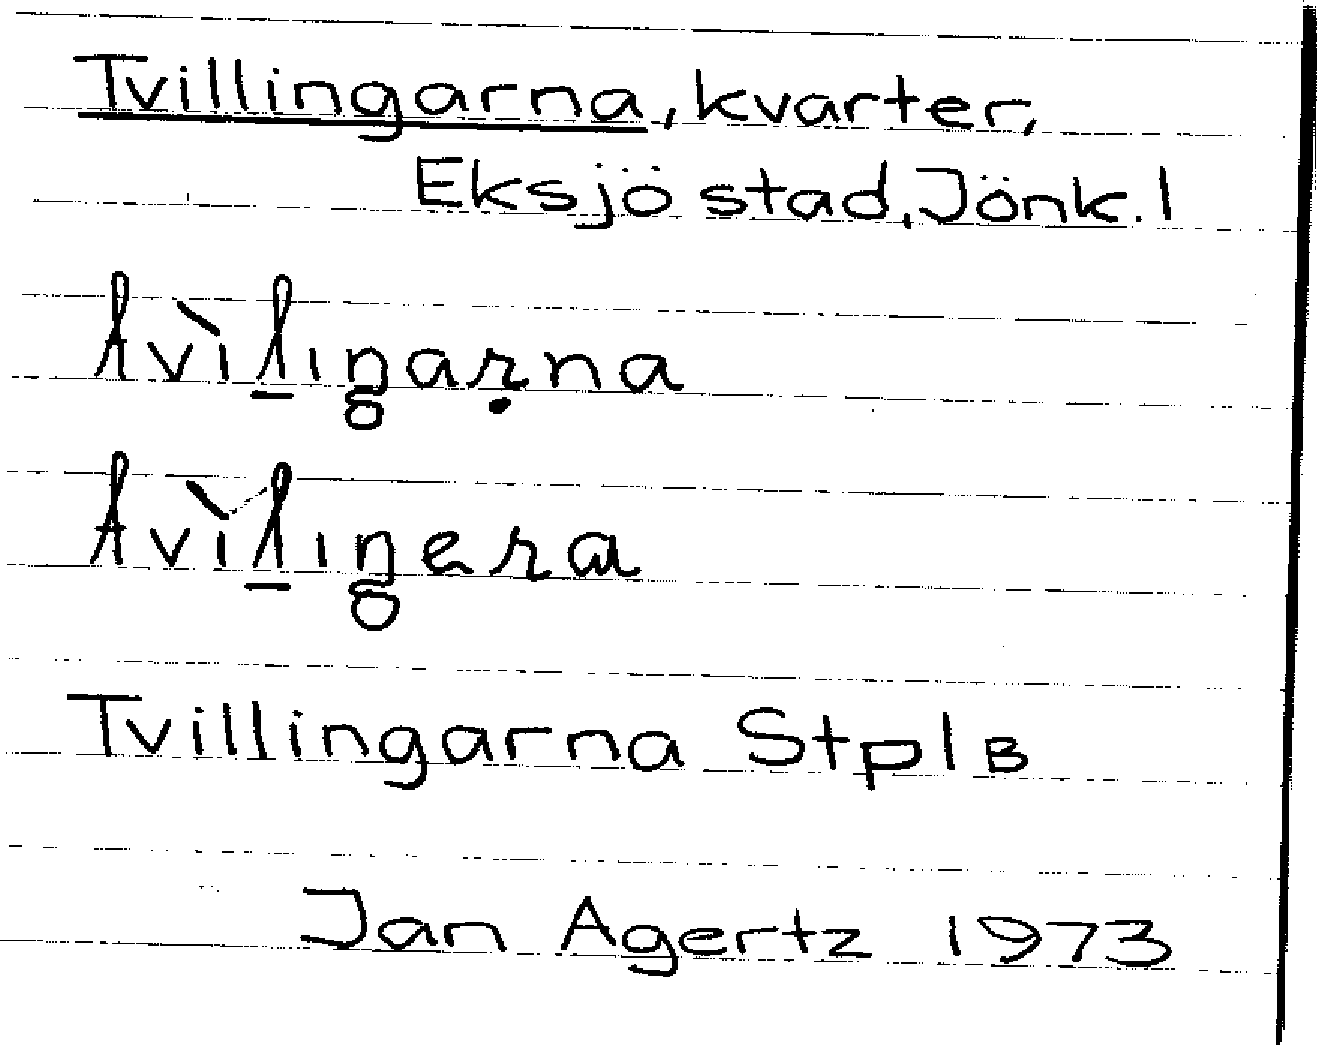 Tvillingarna, kvarter,
Eksjö stad, Jönk. l
tvìl̠ıŋaṛna
tvìl̠ıŋera
Tvillingarna Stpl B
Jan Agertz 1973